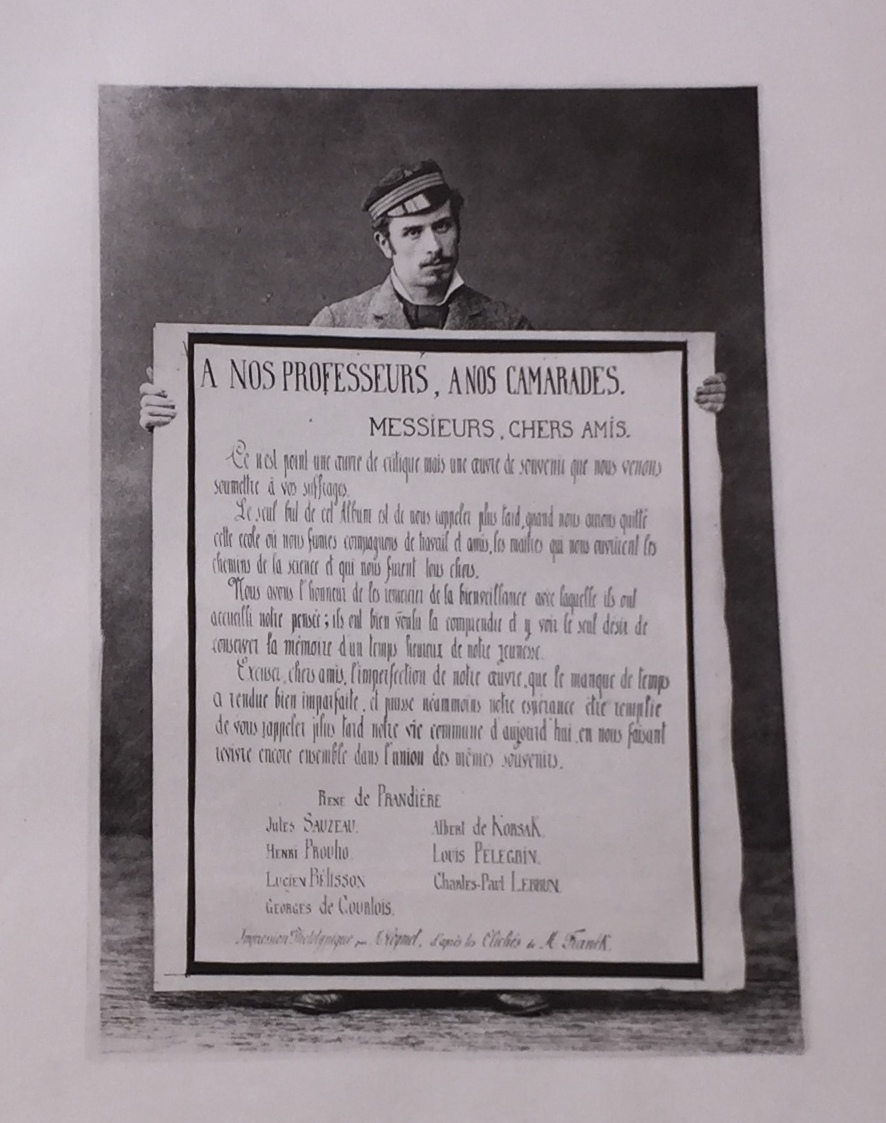 A NOS PROFESSEURS, A NOS CAMARADES.
MESSIEURS, CHERS AMIS.
Ce n'est point une œuvre de critique mais une œuvre de souvenir que nous venons
soumettre à vos suffrages.
Le seul but de cet Album est de nous rappeler plus tard, quand nous aurons quitté
cette école où nous fumes compagnons de travail et amis, les maîtres qui nous ouvrirent les
chemins de la science et qui nous furent tous chers.
Nous avons l'honneur de les remercier de la bienveillance avec laquelle ils ont
accueilli notre pensée; ils ont bien voulu la comprendre et y voir le seul désir de
conserver la mémoire d'un temps heureux de notre jeunesse.
Excusez, chers amis, l'imperfection de notre œuvre, que le manque de temps
a rendue bien imparfaite, et puisse néammoins notre espérance être remplie
de vous rappeler plus tard notre vie commune d'aujourd'hui, en nous faisant
revivre encore ensemble dans l'union des mêmes souvenirs.
RENÉ de PRANDIÈRE
Jules SAUZEAU.
Albert de KORSAK.
HENRI PROUHO.
Louis PELEGRIN.
LUCIEN BÉLISSON
Charles-Paul LEBRUN.
GEORGES de Courlois.
Impression Phototypique par d'après les Clichés de M. Franck.